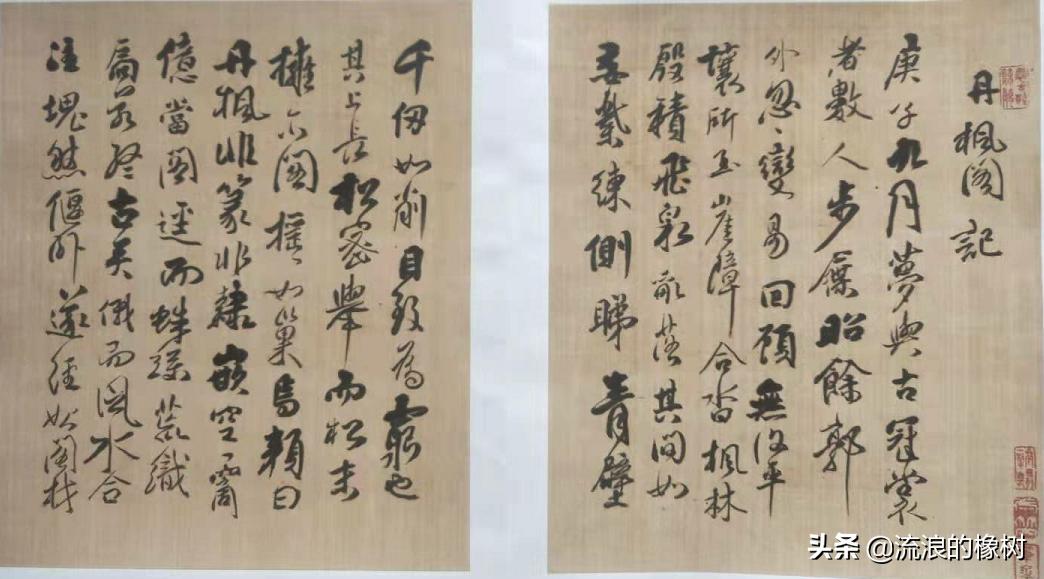 丹楓閣記
庚子九月夢與古冠裳
者數人步屧昭餘郭
外忽〻變易回顧無復平
壤所至崖障合沓楓林
殷積飛泉散落其間如
委縈練側睇青壁
千仞如削目致為窮也
其上長松密舉而松末
擁閣搖〻如巢焉曰
丹楓非篆非隸嵌空一窗
億當閣逕而蛛蹊荒織
扃若終古矣俄而風水合
注塊然偃卧遂經始閣材
头条 @流浪的橡树